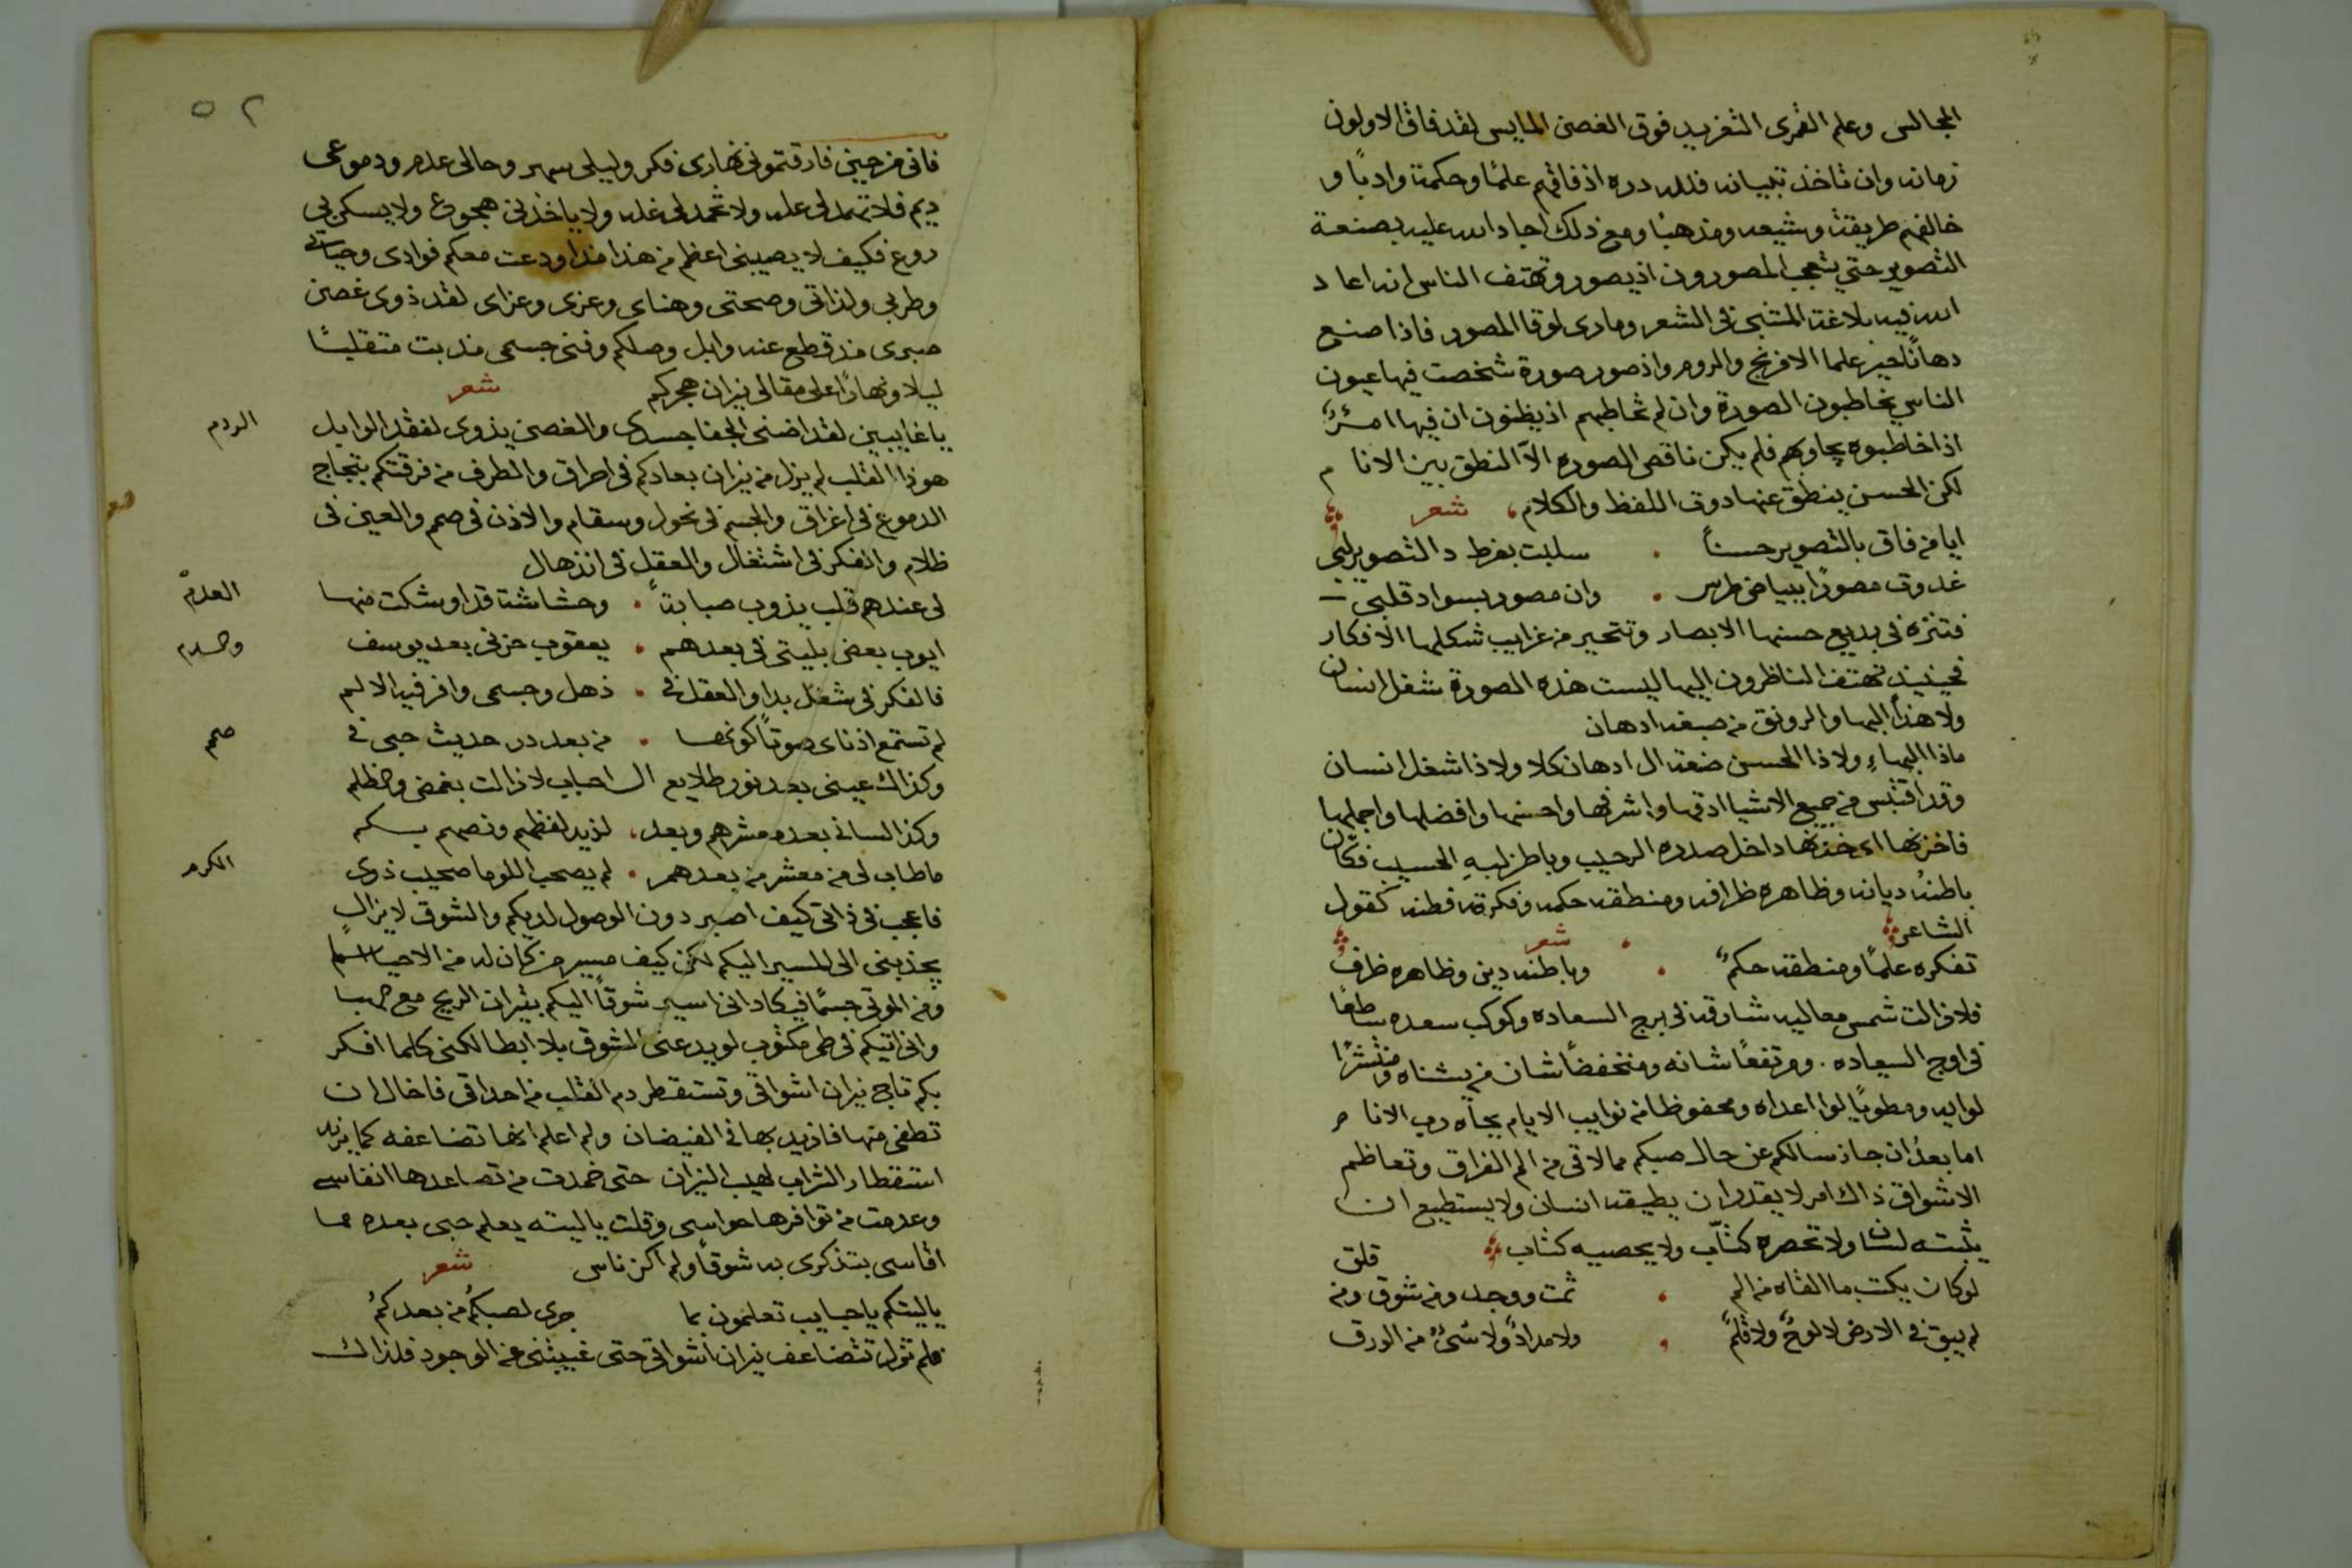 المجالس وعلم القمرى التغريد فوق الغصن المايس لقد فاق الاولون
زمانه وان تاخذ تبيانه فلله دره اذ فاقهم علمًا وحكمة وادبًا و
خالفهم طريقة وشيعه ومذهبًا ومع ذلك اجاد الله عليه بصنعة
التصوير حتي يتعجب المصورون اذ يصور وتهتف الناس انه اعاد
الله فيه بلاغة المتنبى فى الشعر ومارى لوقا المصور فاذا صنع
دهانًا حير علما الافرنج والروم واذ صور صورة شخصت فيها عيون
الناس يخاطبون الصورة وان لم تخاطبهم اذ يظنون ان فيها
اذا خاطبوه يجاوبهم فلم يكن ناقص الصوره الّا النطق بين الانام
لكن الحسن ينطق عنها دون اللفظ والكلام شعر
ايا من فاق بالتصوير حسنًا سلبت بفرط دا التصوير لبي
غدوت مصورًا ببياض طرس وان مصور بسواد قلبي
فتنزه فى بديع حسنها الابصار وتتحير من غرايب شكلها الافكار
فحينيذ تهتف الناظرون اليها اليست هذه الصورة شغل انسان
ولا هذا البها والرونق من صبغه ادهان
ماذا البهاءِ ولا ذا الحسن صنعة ال ادهان كلا ولا ذا شغل انسان
وقد اقتبس من جميع الاشيا ادقها واشرفها واحسنها وافضلها واجملها
فاخزنها داخل صدره الرحيب وباطن لبهِ الحسيب فكان
باطنهُ ديانه وظاهره ظرافه ومنطقه حكمه وفكرته فطنه كقول
الشاعر شعر
تفكره علمًا ومنطقه حكمٌ وباطنه دين وظاهره ظرف
فلا زالت شمس معاليه شارقه فى برج السعاده وكوكب سعده ساطعًا
فى اوج السياده. ومرتفعًا شانه ومنخفضًا شان من يشناه ومنتشرًا
لوايه ومطويًا لوا اعداه ومحفوظا من نوايب الايام بجاه رب الانام
اما بعدُ ان جاز سالكم عن حال صبكم مما لاقى من الم الفراق وتعاظم
الاشواق ذاك امر لا يقدر ان يطيقه انسان ولا يستطيع ان
يثبته لسان ولا تحصره كتّاب ولا يحصيه كتاب
قلق
لوكان يكتب ما القاه من الم ثمت ووجد ومن شوق ومن
لم يبق فى الارض لا لوحٌ ولا قلمٌ ولا مدادٌ ولا شئٌ من الورق
٥٢
فانى من حين فارقتمونى نهارى فكر وليلى سهر وحالى عدم ودموعى
ديم فلا تهمد لى عله ولا تخمد لى غله ولا ياخذنى هجوع ولا يسكن بى
روع فكيف لا يصيبنى اعظم من هذا مذ اودعت معكم فوادى وحياتى
وطربى ولذاتى وصحتى وهناى وعزى وعزاى لقد ذوى غصن
صبرى مذ قطع عنه وابل وصلكم وفنى جسمى مذ بت متقلبًا
ليلا ونهارًا على مقالى نيران هجركم شعر
يا غايبين لقد اضنى الجفا جسدى والغصن يذوى لفقد الوابل الردم
هوذا القلب لم يزل من نيران بعادكم فى احراق والطرف من فرقتكم
الدموع فى اغراق والجسم فى نحول وسقام والاذن فى صمم والعين فى
ظلام والفكر فى اشتغال والعقل فى انذهال
لى عندهم قلب يذوب صبابةً وحشاشة قد اوشكت منها العدم
ايوب بعض بليتى فى بعدهم يعقوب حزنى بعد يوسف
فالفكر فى شغل بدا والعقل فى ذهل وجسمى وافر فيه الالم
لم تستمع اذناى صوتًا كونها من بعد در حديث حبى فى صمم
وكذاك عينى بعد نور طلايع ال احباب لا زالت بغمض وظلم
وكذا لسانى بعد معشرهم وبعد لذيذ لفظهم ونصهم بسكم
ما طاب لى من معشر من بعدهم لم يصحب اللوما صحيب ذوى الكرم
فاعجب فى ذاتى كيف اصبر دون الوصول لديكم والشوق لا يزال
يجذبنى الى المسير اليكم لكن كيف مسير من كان له من الاحيا
ومن الموتى جسمًا فيكاد انى اسير شوقًا اليكم بتيران الريح مع صبا
وانى اتيكم فى طى مكتوب لو يدعنى الشوق بلا ابطا لكنى كلما افكر
بكم تاجج نيران اشواقى وتستقطر دم القلب من احداقى فاخال ان
تطفى منها فازيد بها فى الفيضان ولم اعلم انها تضاعفه كما يزيد
استقطار التراب لهيب النيران حتى خمدت من تصاعدها انفاسى
وعدمت من توافرها حواسى وقلت ياليته يعلم حبى بعده مما
اقاسى بتذكرى به شوقًا ولم اكن ناسى شعر
ياليتكم يا حبايب تعلمون بما جرى لصبكمُ من بعدكمُ
فلم تزل تتضاعف نيران اشواقى حتى غيبتنى عن الوجود فلذاك